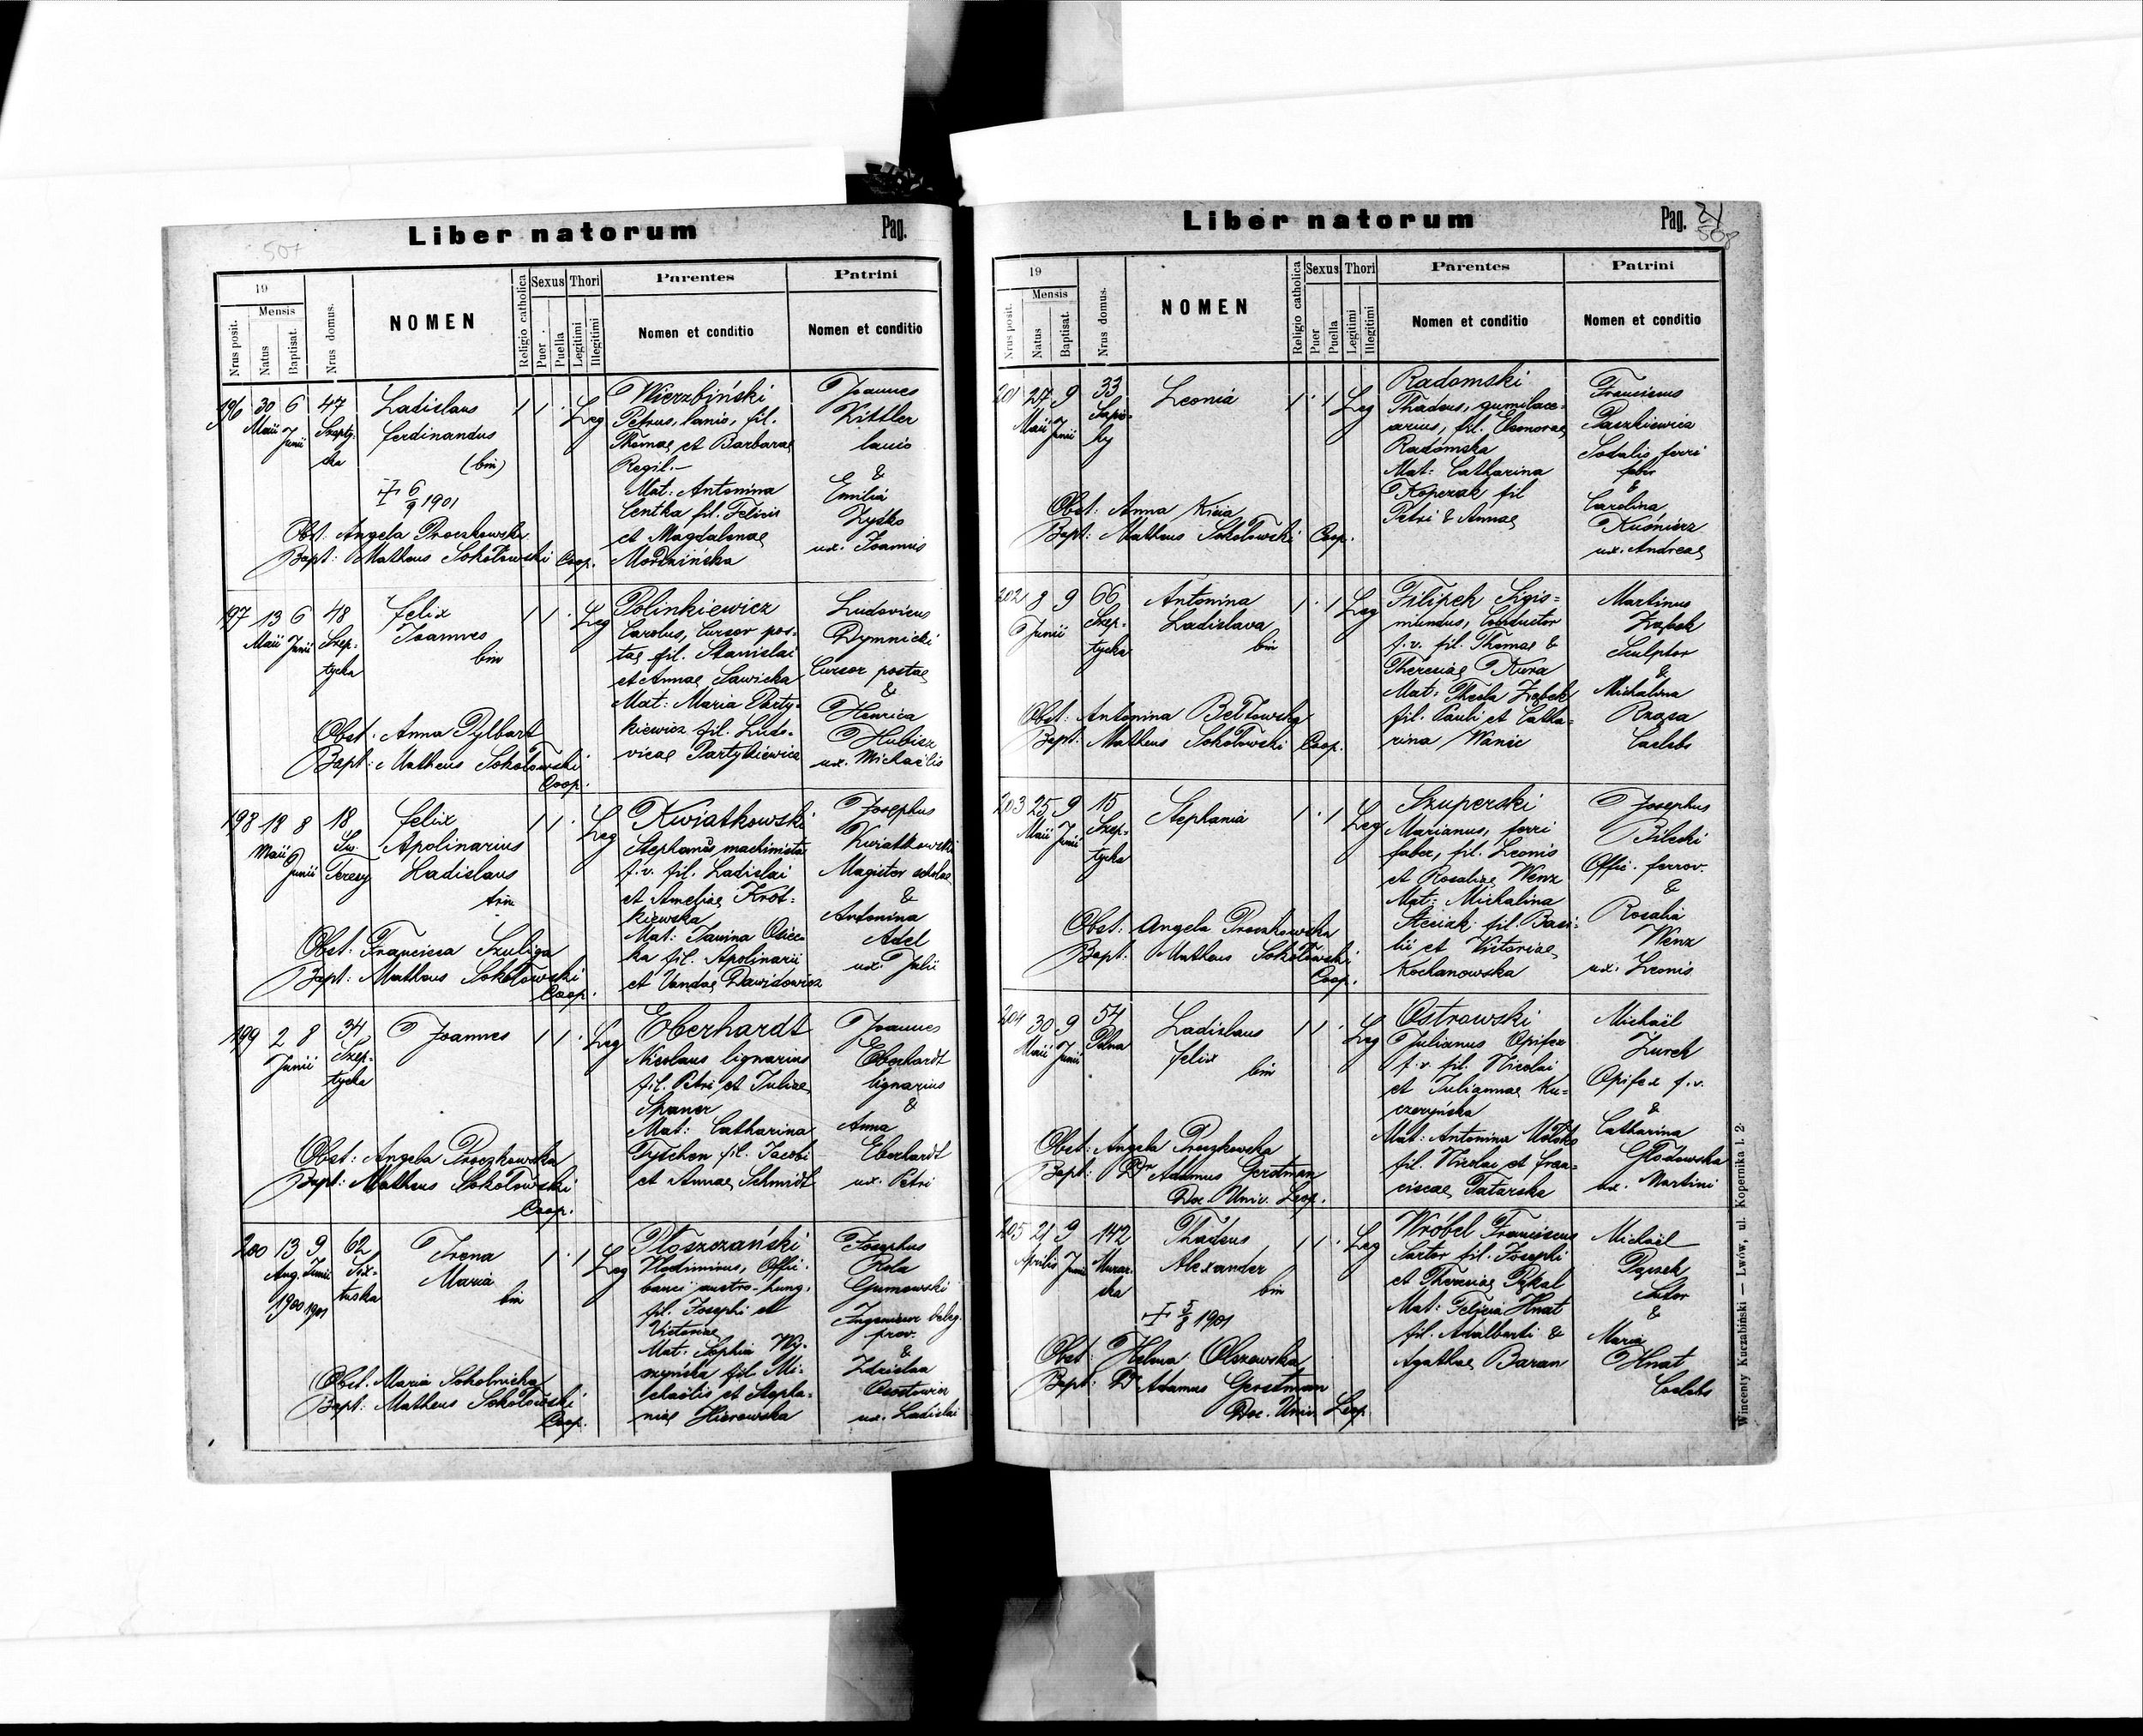 507
Liber natorum
Pag.
19
Mensis
Nrus posit.
Natus
Baptisat.
Nrus domus.
NOMEN
Religio catholica
Sexus
Puer.
Puella
Thori
Legitimi
Illegitimi
Parentes
Nomen et conditio
Patrini
Nomen et conditio
196 30 6 47
Maii Junii Szepty-
cka
Ladislaus
Ferdinandus
(bin)
+ 6/9 1901
Obst: Angela Proczkowska
Bapt: Matheus Sokołowski Coop.
1 1 . Leg
Wierzbiński
Petrus, lanio, fil.
Thomae et Barbarae
Regil.—
Mat: Antonina
Centka fil. Felicis
et Magdalenae
Modzińska
Joannes
Kittler
lanio
&
Emilia
Zysko
ux. Joannis
197 13 6 48
Maii Junii Szep-
tycka
Felix
Joannes
bin
Obst: Anna Pylbart
Bapt: Matheus Sokołowski
Coop.
1 1 . Leg
Polinkiewicz
Carolus, Cursor pos-
tae fil. Stanislai
et Annae Sawicka
Mat: Maria Party-
kiewicz fil. Ludo-
vicae Partykiewicz
Ludovicus
Dymnicki
Cursor postae
&
Henrica
Hubisz
ux. Michaëlis
198 18 8 18
Maii Junii Sw.
Teresy
Felix
Apolinarius
Ladislaus
trin
Obst: Francisca Szuliga
Bapt: Matheus Sokołowski
Coop.
1 1 . Leg
Kwiatkowski
Stephanus machinista
f.v. fil. Ladislai
et Ameliae Krót-
kiewska
Mat: Janina Osiec-
ka fil. Apolinarii
et Vandae Dawidowicz
Josephus
Kwiatkowski
Magister scholae
&
Antonina
Adel
ux. Julii
199 2 8 34
Junii Szep-
tycka
Joannes
Obst: Angela Proczkowska
Bapt: Matheus Sokołowski
Coop.
1 1 . Leg
Eberhardt
Nicolaus lignarius
fil. Petri et Juliae
Spaner
Mat: Catharina
Tytchen fil. Jacobi
et Annae Schmidt
Joannes
Eberhardt
lignarius
&
Anna
Eberhardt
ux. Petri
200 13 9 62
Aug. Junii Six-
tuska
1900 1901
Irena
Maria
bin
Obst: Maria Sokolnicka
Bapt: Matheus Sokołowski
Coop.
1 . 1 Leg
Płoszczański
Vladimirus, Offi.
banci austro-hung.
fil. Josephi et
Victoriae
Mat: Sophia Wy-
szyńska fil. Mi-
chaëlis et Stepha-
niae Hierowska
Josephus
Rola
Gumowski
Ingenieur deleg.
prov.
&
Zdzisłaa
ux. Ladislai
Liber natorum
Pag. 21
508
19
Mensis
Nrus posit.
Natus
Baptisat.
Nrus domus.
NOMEN
Religio catholica
Sexus
Puer
Puella
Thori
Legitimi
Illegitimi
Parentes
Nomen et conditio
Patrini
Nomen et conditio
201 27 9 33
Maii Junii Sapie-
hy
Leonia
Obst: Anna Kicia
Bapt: Matheus Sokołowski Coop.
1 . 1 Leg
Radomski
Thadeus, gumilace-
arius, fil. Eleonorae
Radomska
Mat: Catharina
Koperzak fil
Petri & Annae
Franciscus
Paszkiewicz
Sodalis ferri
faber
&
Carolina
Kuśnierz
ux. Andreae
202 8 9 66
Junii Szep-
tycka
Antonina
Ladislava
bin
Obst: Antonina Bełtowska
Bapt: Matheus Sokołowski Coop.
1 . 1 Leg
Filipek Sigis-
mundus, Conductor
f.v. fil. Thomae &
Theresiae Kura
Mat: Thecla Ząbek
fil. Pauli et Catha-
rina Wanic
Martinus
Ząbek
Sculptor
&
Michalina
Rząsa
Caelebs
203 25 9 15
Maii Junii Szep-
tycka
Stephania
Obst: Angela Proczkowska
Bapt: Matheus Sokołowski
Coop.
1 . 1 Leg
Szuperski
Marianus, ferri
faber, fil. Leonis
et Rosaliae Wenz
Mat: Michalina
Steciak fil. Basi-
lii et Victoriae
Kochanowska
Josephus
Bilecki
Offic. ferrov.
&
Rosalia
Wenz
ux. Leonis
204 30 9 54
Maii Junii Polna
Ladislaus
Felix
bin
Obst: Angela Proczkowska
Bapt: Dr Adamus Gerstman
Doc. Univ. Leop.
1 1 . Leg
Ostrowski
Julianus Opifex
f.v. fil. Nicolai
et Juliannae Ku-
czeryńska
Mat: Antonina Mótsko
fil. Nicolai et Fran-
ciscae Tatarska
Michaël
Żurek
Opifex f.v.
&
Catharina
Głodowska
ux. Martini
205 21 9 142
Aprilis Junii Murar-
ska
Thadeus
Alexander
bin
+ 5/8 1901
Obst: Helena Olszewska
Bapt: Dr Adamus Gerstman
Doc. Univ. Leop.
1 1 . Leg
Wróbel Franciscus
Sartor fil. Josephi
et Theresiae Pękal
Mat: Felicia Hnat
fil. Adalberti &
Agathae Baran
Michaël
Pąsek
Sutor
&
Maria
Hnat
Caelebs
Wincenty Kuczabiński — Lwów, ul. Kopernika l. 2.